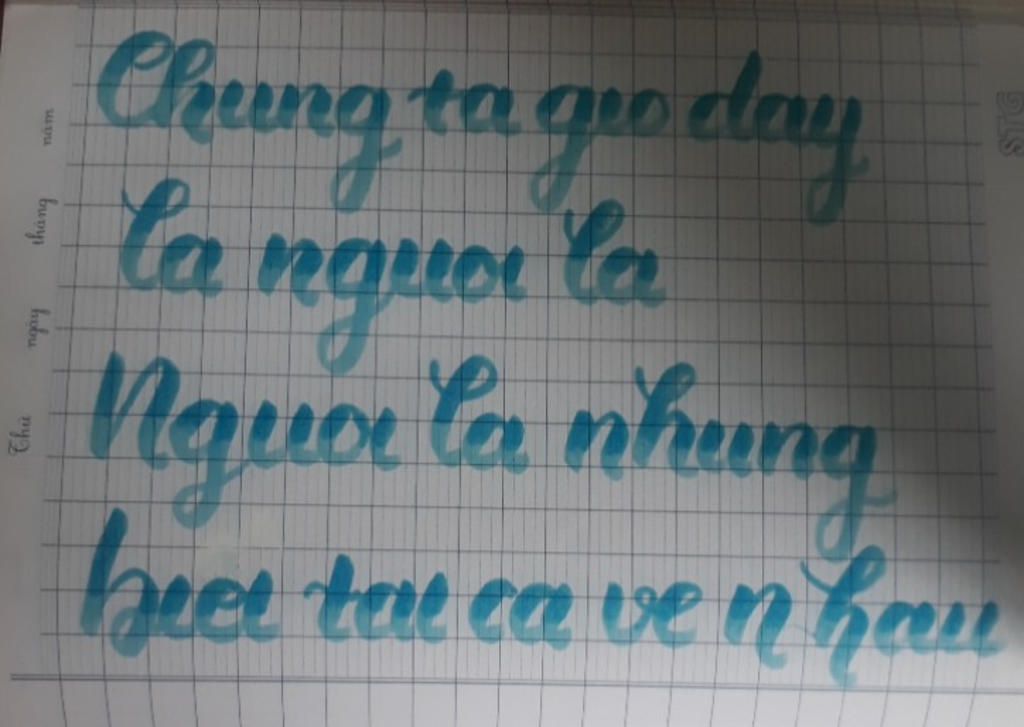 Chung ta giờ day
la nguoi la
Nguoi la nhung
biet tat ca ve nhau
Thứ ngày tháng năm
STG